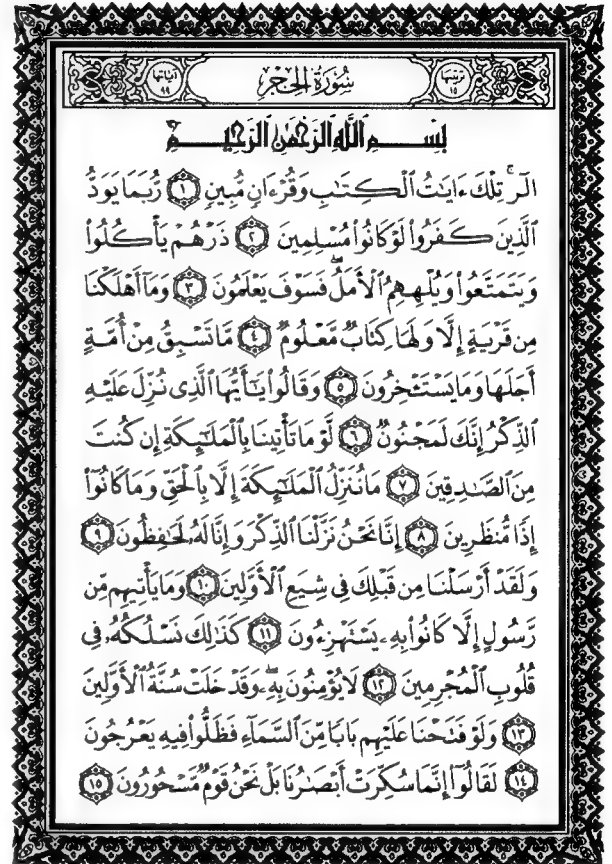 ترتيبها ١٥
سُورَةُ الحِجْرِ
آياتها ٩٩
بِسْمِ ٱللَّهِ ٱلرَّحْمَٰنِ ٱلرَّحِيمِ
الٓرۚ تِلْكَ ءَايَٰتُ ٱلْكِتَٰبِ وَقُرْءَانٍ مُّبِينٍ ١ رُّبَمَا يَوَدُّ
ٱلَّذِينَ كَفَرُوا۟ لَوْ كَانُوا۟ مُسْلِمِينَ ٢ ذَرْهُمْ يَأْكُلُوا۟
وَيَتَمَتَّعُوا۟ وَيُلْهِهِمُ ٱلْأَمَلُ ۖ فَسَوْفَ يَعْلَمُونَ ٣ وَمَآ أَهْلَكْنَا
مِن قَرْيَةٍ إِلَّا وَلَهَا كِتَابٌ مَّعْلُومٌ ٤ مَّا تَسْبِقُ مِنْ أُمَّةٍ
أَجَلَهَا وَمَا يَسْتَـْٔخِرُونَ ٥ وَقَالُوا۟ يَٰٓأَيُّهَا ٱلَّذِى نُزِّلَ عَلَيْهِ
ٱلذِّكْرُ إِنَّكَ لَمَجْنُونٌ ٦ لَّوْ مَا تَأْتِينَا بِٱلْمَلَٰٓئِكَةِ إِن كُنتَ
مِنَ ٱلصَّٰدِقِينَ ٧ مَا نُنَزِّلُ ٱلْمَلَٰٓئِكَةَ إِلَّا بِٱلْحَقِّ وَمَا كَانُوٓا۟
إِذًا مُّنظَرِينَ ٨ إِنَّا نَحْنُ نَزَّلْنَا ٱلذِّكْرَ وَإِنَّا لَهُۥ لَحَٰفِظُونَ ٩
وَلَقَدْ أَرْسَلْنَا مِن قَبْلِكَ فِى شِيَعِ ٱلْأَوَّلِينَ ١٠ وَمَا يَأْتِيهِم مِّن
رَّسُولٍ إِلَّا كَانُوا۟ بِهِۦ يَسْتَهْزِءُونَ ١١ كَذَٰلِكَ نَسْلُكُهُۥ فِى
قُلُوبِ ٱلْمُجْرِمِينَ ١٢ لَا يُؤْمِنُونَ بِهِۦ ۖ وَقَدْ خَلَتْ سُنَّةُ ٱلْأَوَّلِينَ
١٣ وَلَوْ فَتَحْنَا عَلَيْهِم بَابًا مِّنَ ٱلسَّمَآءِ فَظَلُّوا۟ فِيهِ يَعْرُجُونَ
١٤ لَقَالُوٓا۟ إِنَّمَا سُكِّرَتْ أَبْصَٰرُنَا بَلْ نَحْنُ قَوْمٌ مَّسْحُورُونَ ١٥